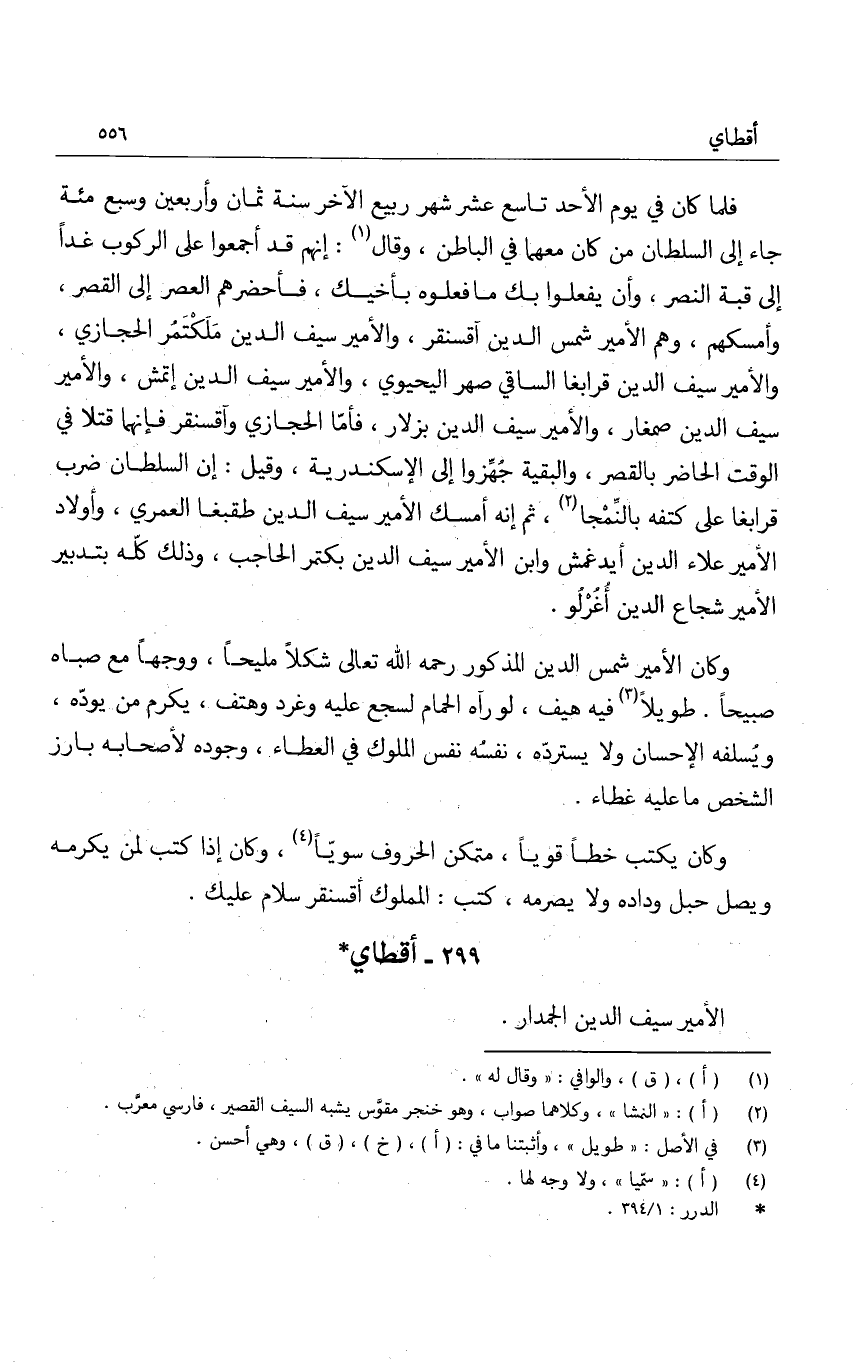 أقطاي
٥٥٦
فلما كان في يوم الأحد تاسع عشر شهر ربيع الآخر سنة ثمان وأربعين وسبع مئة
جاء إلى السلطان من كان معهما في الباطن ، وقال(١) : إنهم قد أجمعوا على الركوب غداً
إلى قبة النصر ، وأن يفعلوا بك ما فعلوه بأخيك ، فأحضرهم العصر إلى القصر ،
وأمسكهم ، وهم الأمير شمس الدين آقسنقر ، والأمير سيف الدين مَلَكْتَمُر الحجازي ،
والأمير سيف الدين قرابغا الساقي صهر اليحيوي ، والأمير سيف الدين إتمش ، والأمير
سيف الدين صمغار ، والأمير سيف الدين بزلار ، فأمّا الحجازي وآقسنقر فإنهما قتلا في
الوقت الحاضر بالقصر ، والبقية جُهِّزوا إلى الإسكندرية ، وقيل : إن السلطان ضرب
قرابغا على كتفه بالنِّمْجا(٢) ، ثم إنه أمسك الأمير سيف الدين طقبغا العمري ، وأولاد
الأمير علاء الدين أيدغمش وابن الأمير سيف الدين بكتمر الحاجب ، وذلك كلّه بتدبير
الأمير شجاع الدين أُغُرْلُو .
وكان الأمير شمس الدين المذكور رحمه الله تعالى شكلاً مليحاً ، ووجهاً مع صباه
صبيحاً . طويلاً(٣) فيه هيف ، لو رآه الحمام لسجع عليه وغرد وهتف ، يكرم من يودّه ،
ويُسلفه الإحسان ولا يستردّه ، نفسُه نفس الملوك في العطاء ، وجوده لأصحابه بارز
الشخص ما عليه غطاء .
وكان يكتب خطاً قوياً ، متمكن الحروف سويّاً(٤) ، وكان إذا كتب لمن يكرمه
ويصل حبل وداده ولا يصرمه ، كتب : المملوك أقسنقر سلام عليك .
٢٩٩ ـ أقطاي*
الأمير سيف الدين الجمدار .
(١) ( أ ) ، ( ق ) ، والوافي : « وقال له » .
(٢) ( أ ) : « النمشا » ، وكلاهما صواب ، وهو خنجر مقوَّس يشبه السيف القصير ، فارسي معرَّب .
(٣) في الأصل : « طويل » ، وأثبتنا ما في : ( أ ) ، ( خ ) ، ( ق ) ، وهي أحسن .
(٤) ( أ ) : « سمّيا » ، ولا وجه لها .
* الدرر : ٣٩٤/١ .